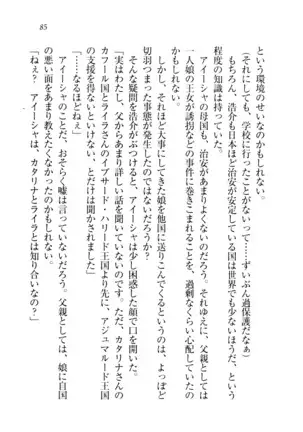 85
という環境のせいなのかもしれない。
（それにしても、学校に行ったことがないって……ずいぶん過保護だなぁ）
もちろん、浩介も日本ほど治安が安定している国は世界でも少ないほうだ、という
程度の知識は持っていた。
アイーシャの母国も、治安があまりよくないのだろう。それゆえに、父親としては
一人娘の王女が誘拐などの事件に巻きこまれることを、過剰なくらい心配していたの
かもしれない。
しかし、それほど大事にしてきた娘を他国に送りこんでくるというのは、よっぽど
切羽つまった事態が発生したのではないだろうか？
そんな疑問を浩介がぶつけると、アイーシャは少し困惑した顔で口を開いた。
「実はわたし、父からあまり詳しい話を聞いていないのです。ただ、カタリナさんの
カフール国とライラさんのイブサード・ハリード王国より先に、アジュマルード王国
の支援を得ないといけない、とだけは聞かされました」
「なるほどねぇ」
アイーシャのことだ、おそらく嘘は言っていないだろう。父親としては、娘に自国
の悪い面をあまり教えたくなかったのかもしれない。
「ねぇ？　アイーシャは、カタリナとライラとは知り合いなの？」